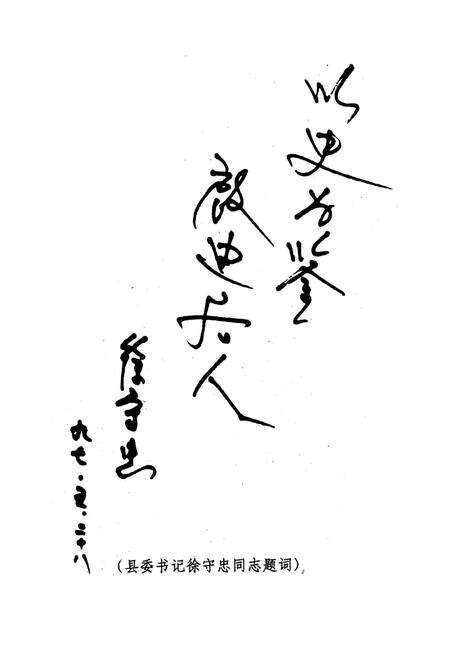 以史为鉴
启迪后人
徐守忠
九七·五·二十八
(县委书记徐守忠同志题词)